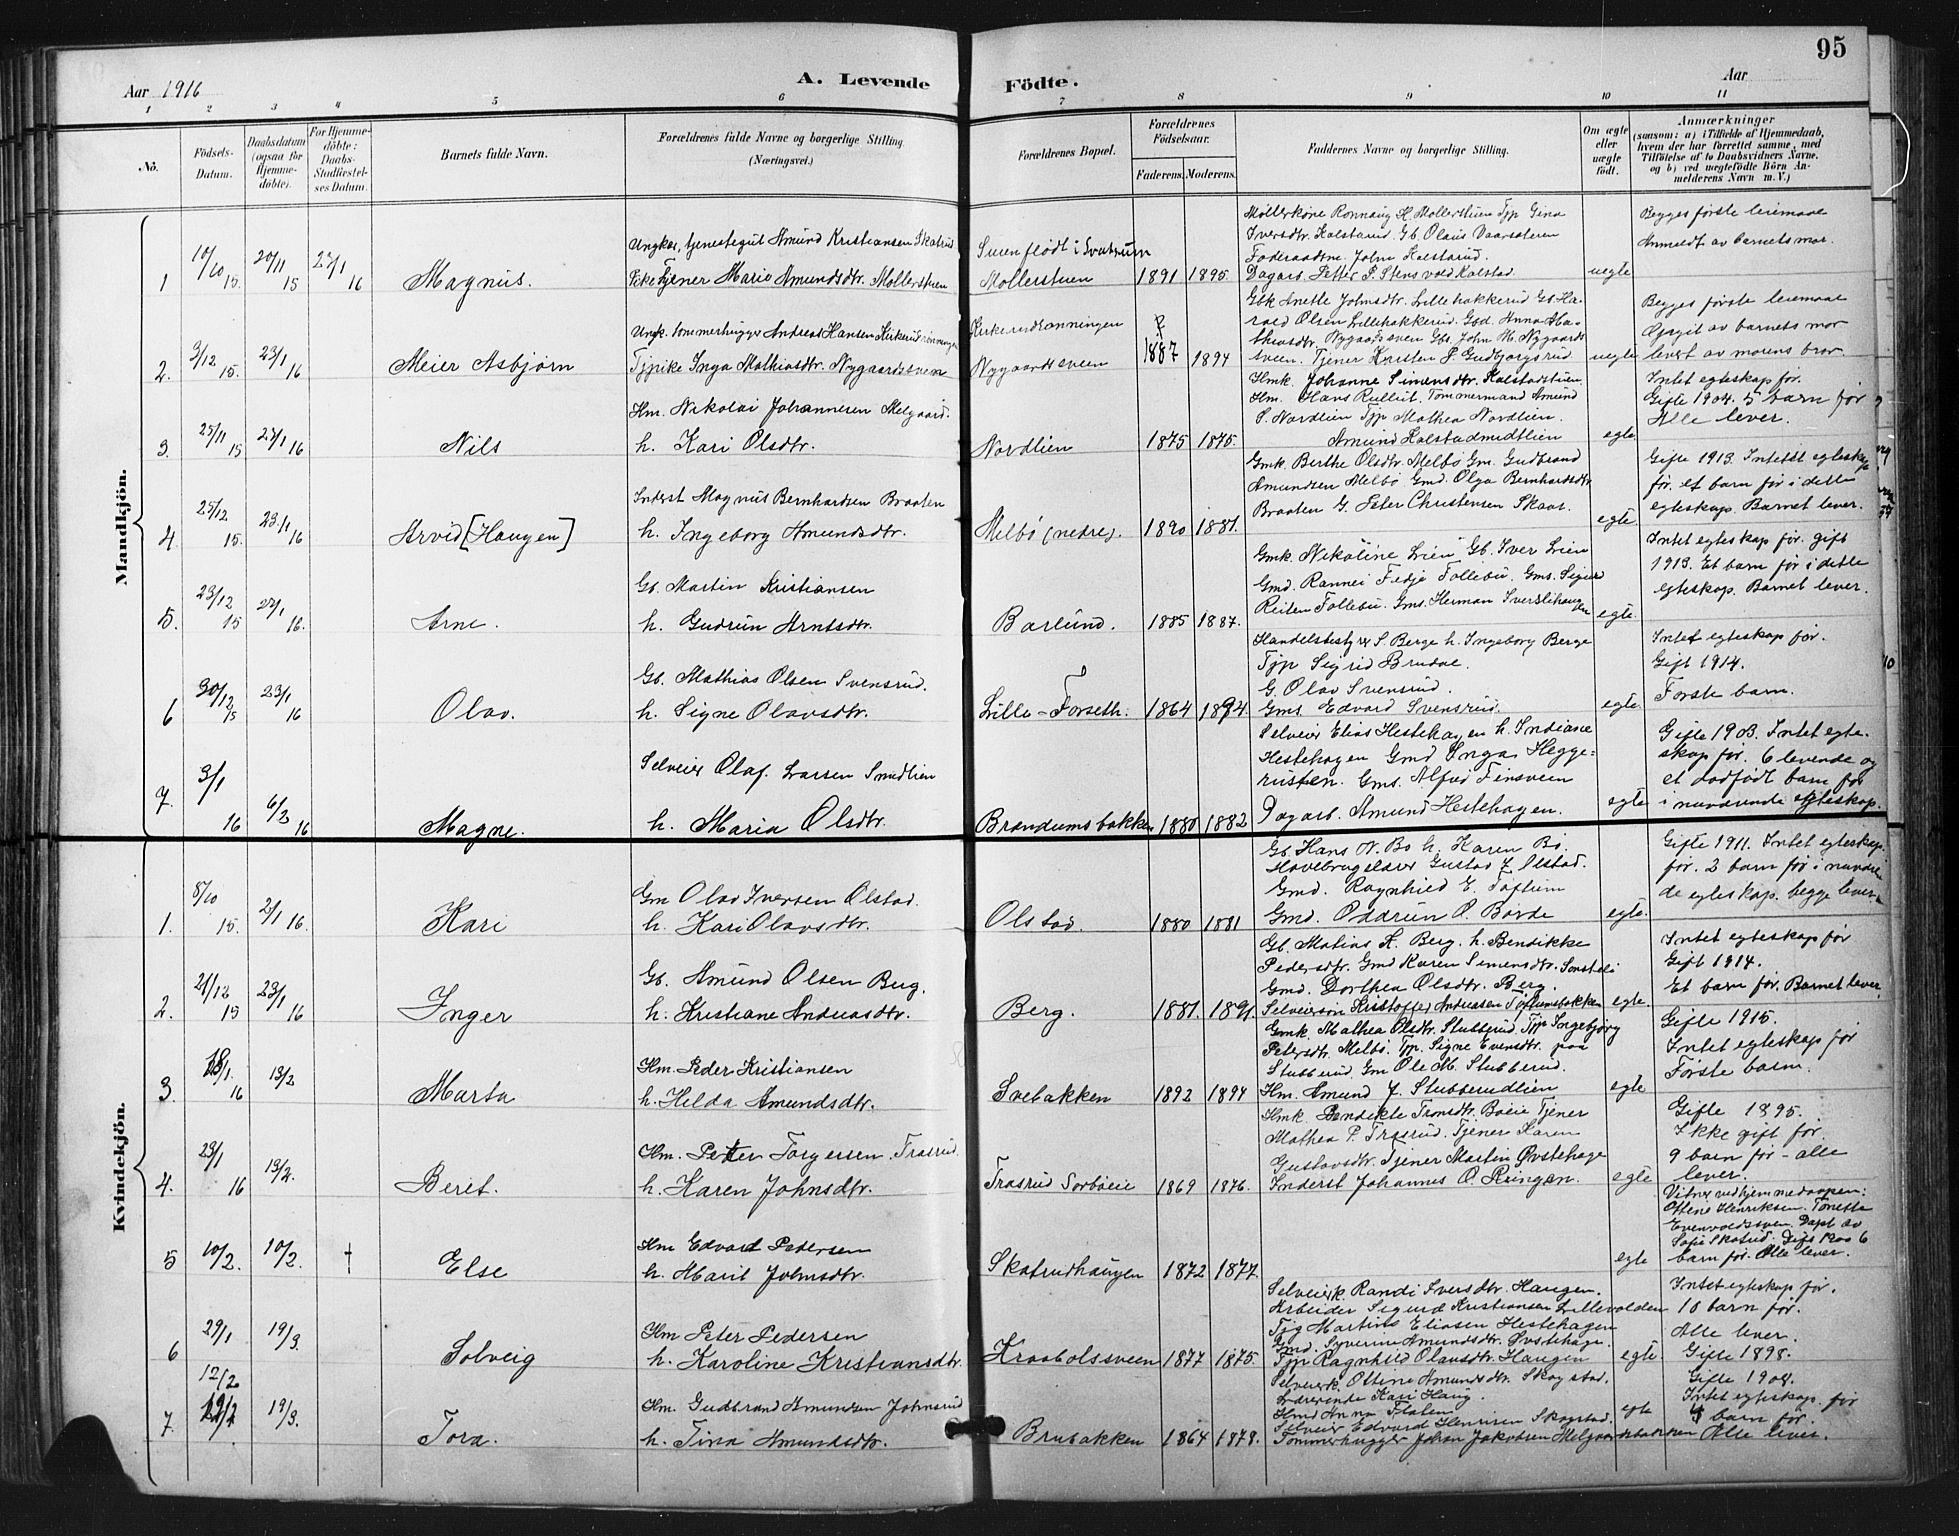 95
Aar 1916
A. Levende
Födte.
Aar
1 2 3 4 5 6 7 8 9 10 11
No.
Födsels-Datum.
Daabsdatum (ogsaa for Hjemme-döbte).
For Hjemme-döbte: Daabs-Stadfæstel-ses Datum.
Barnets fulde Navn.
Forældrenes fulde Navne og borgerlige Stilling. (Næringsvei.)
Forældrenes Bopæl.
Forældrenes Födselsaar.
Faderens. Moderens.
Faddernes Navne og borgerlige Stilling.
Om ægte eller uægte födt.
Anmærkninger
(saasom: a) i Tilfælde af Hjemmedaab, hvem der har forrettet samme, med Tilföielse af to Daabsvidners Navne. og b) ved uægtefödte Börn An-melderens Navn m. V.)
Mandkjön.
1 10/10 15. 20/11 15 23/1 16 Magnus.
Ungkar, tjenestegut Amund Kristiansen Skatrud
Pike Tjener Marie Amundsdtr. Mollerstuen
Mollerstuen 1891 1895.
Møllerkone Ronnaug H. Mollerstuen Tjp Gina
Iversdtr. Kalstarud. Gb. Olaus Vaarsæteren
Foderaadsm. John Kalstarud.
Dagarb. Petter P. Stensvold Kalstad
uegte
Begges første leiemaal
Anmeldt av barnets mor.
2. 3/12 15. 23/1 16 Meier Asbjørn
Ungk. tommerhugger Andreas Hansen Kirkerudrønningen
Tjpike Inga Mathiasdtr. Nygaardssveen
Nygaardssveen 1887 1894
Gbk Anette Johnsdtr. Lillehakkerud Gb. Ha-
rald Olsen Lillehakkerud. Gbd. Anna Ma-
thiasdtr. Nygaardssveen Gbs. John M. Nygaards
sveen. Tjener Kristen P. Gudbjørgsrud
uegte
Begges første leiemaal
Opgit av barnets mor
levert av morens bror.
3. 25/11 15 23/1 16 Nils
Hm. Nikolai Johannesen Melgaard.
h. Kari Olsdtr.
Nordlien 1875 1875.
Hmk. Johanne Simensdtr. Kalstadstuen.
Hm. Hans Rullut. Tommermand Amund
P. Nordlien Tjp Mathea Nordlien.
Amund Kalstadmidtlien
egte
Intet egteskap før.
Gifte 1904. 5 barn før
Alle lever.
4. 25/12 15. 23/1 16 Arvid [Haugen]
Inderst Magnus Bernhardsen Braaten
h. Ingeborg Amundsdtr.
Melbö (nedre). 1890 1881.
Gmk. Berthe Olsdtr. Melbö Gm. Gudbrand
Amundsen Melbö Gmd. Olga Bernhardsdtr
Braaten G. Peter Christensen Skaar.
egte
Gifte 1913. Intet egteskap
før. et barn før i dette
egteskap. Barnet lever.
5. 23/12 15 23/1 16. Arne.
Gb. Martin Kristiansen
h. Gudrun Arntsdtr.
Barlund. 1885 1887.
Gmk. Nikoline Lien Gb. Iver Lien
Gmd Rannei Fedje Follebu. Gms. Sigurd
Reiten Follebu. Gms. Herman Sverslihaugen
egte
Intet egteskap før. gift
1913. Et barn før i dette
egteskap. Barnet lever.
6 30/12 15 23/1 16 Olav.
Gb. Mathias Olsen Svensrud.
h. Signe Olavsdtr.
Lille-Forseth. 1864 1894.
Handelsbestyrer S. Berge h. Ingeborg Berge
Tjp Sigrid Brudal.
G. Olav Svensrud.
Gms. Edvard Svensrud.
egte.
Intet egteskap før.
Gift 1914.
Første barn.
7. 3/1 16 6/3 16 Magne.
Selveier Olaf Larsen Smidlien
h. Maria Olsdtr.
Brandumsbakken 1880 1882
Selveier Elias Hestehagen h. Indiane
Hestehagen Gmd Inga Hegge-
rusten. Gms. Alfred Finsveen
Dagarb. Amund Hestehagen.
egte
Gifte 1903. Intet egte-
skap før. 6 levende og
et dødfødt barn før
i nuværende egteskap.
Kvindekjön.
1. 8/10 15. 2/1 16. Kari
Gm Olav Iversen Olstad.
h. Kari Olavsdtr.
Olstad. 1880 1881
Gb. Hans N. Bö h. Karen Bö.
Gustav Z. Olstad.
Gmd. Ragnhild E. Toftum
Gmd. Oddrun O. Børde
egte.
Gifte 1911. Intet egteskap
før. 2 barn før i nuværen
de egteskap. begge lever.
2. 21/12 15 23/1 16 Inger
Gb. Amund Olsen Berg.
h. Kristiane Andreasdtr.
Berg. 1881 1891.
Gb. Matias K. Berg. h. Bendikke
Pedersdtr. Gmd Karen Simensdtr.
Gmd. Dorthea Olsdtr. Berg.
Selveiersøn Kristoffer Andreasen Toftumsbakken
egte.
Intet egteskap før
Gift 1914.
Et barn før. Barnet lever.
3. 18/1 16 13/2 Marta
Hm. Peder Kristiansen
h. Helda Amundsdtr.
Svebakken 1892 1894
Gmk. Mathea Olsdtr. Stubberud. Tjp Ingebjörg
Petersdtr. Melbö. Tjp. Signe Evensdtr. paa
Stubberud. Gm Ole M. Stubberud.
Hm. Amund J. Stubberudlien
egte
Gifte 1915.
Intet egteskap før
Første barn.
4. 23/1 16 13/2. Berit.
Hm. Petter Torgersen Trosrud.
h. Karen Johnsdtr.
Trosrud Sorböeie 1869 1876.
Hmk. Bendikte Tronsdtr. Böeie Tjener
Mathea P. Trosrud. Tjener Karen
Gustavsdtr. Tjener Martin Øvstehage
Inderst Johannes O. Ringen.
egte
Gifte 1895.
Ikke gift før.
9 barn før - alle
lever.
5 10/2. 10/2. † Else
Hm Edvart Pedersen
h. Marit Johnsdtr.
Skatrudhaugen 1872 1877.
egte
Vitner ved hjemmedaapen:
Ottene Henriksen. Tonette
Evenvoldssveen. Døpt av
Sofie Skatrud. 6
barn før. Alle lever.
6 29/1 19/3. Solveig
Hm Peter Pedersen
h. Karoline Kristiansdtr.
Kraabolssveen 1877 1875.
Selveierk. Randi Iversdtr. Haugen.
Arbeider Sigurd Kristiansen Lillevolden
Tjg Martins Eliasen Hestehagen
Gmd. Syverine Amundsdtr. Øvstehage.
Tjp Ragnhild Olavsdtr. Haugen
egte.
Intet egteskap før.
10 barn før.
Alle lever.
Gifte 1898.
7. 12/2 19/3. Tora.
Hm. Gudbrand Amundsen Johnsrud
h. Tina Amundsdtr.
Brubakken 1864 1878.
Selveierk. Ottine Amundsdtr. Skogstad.
Kari Haug.
Hmd Anna Flaten
Selveier Edvard Henriksen Skogstad.
Tommerhugger Johan Jakobsen Melgaardsbakken
egte
Gifte 1904.
Intet egteskap før
4 barn før.
Alle lever.